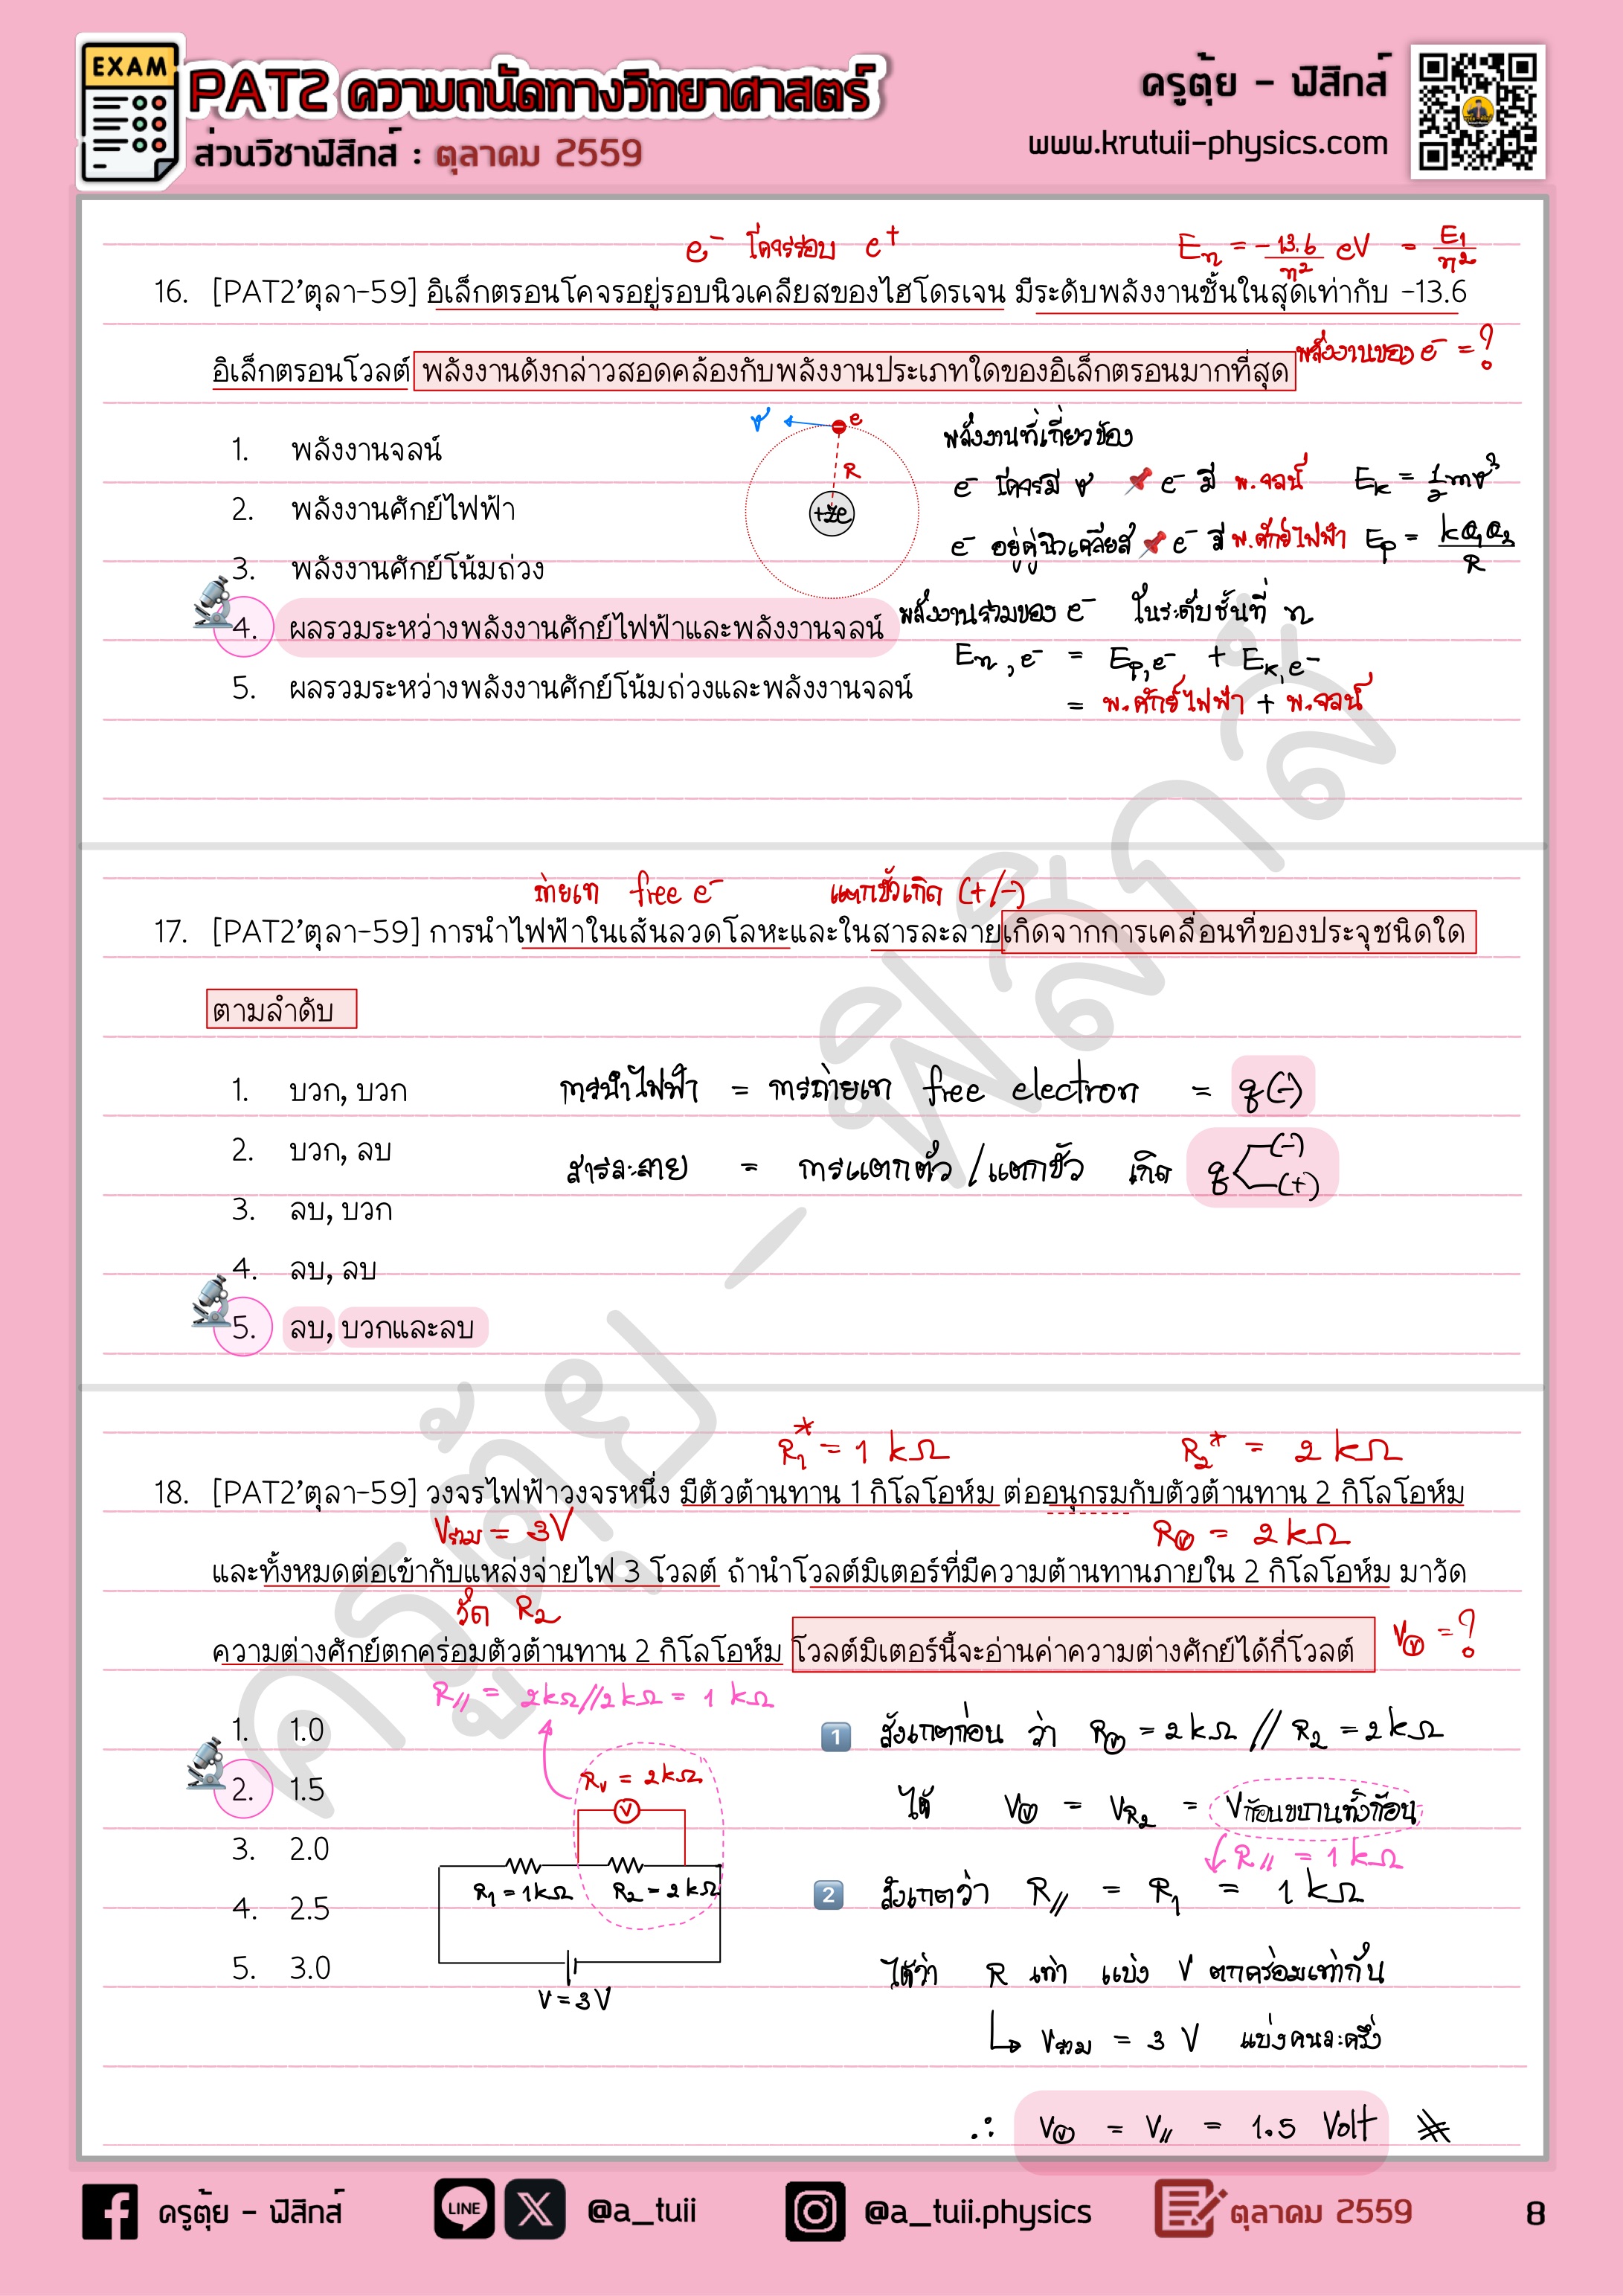 EXAM
PAT2 ความถนัดทางวิทยาศาสตร์
ส่วนวิชาฟิสิกส์ : ตุลาคม 2559
ครูตุ้ย - ฟิสิกส์
www.krutuii-physics.com
e⁻ โคจรรอบ e⁺
Eₙ = -13.6/n² eV = E₁/n²
16. [PAT2'ตุลา-59] อิเล็กตรอนโคจรอยู่รอบนิวเคลียสของไฮโดรเจน มีระดับพลังงานชั้นในสุดเท่ากับ -13.6
อิเล็กตรอนโวลต์ พลังงานดังกล่าวสอดคล้องกับพลังงานประเภทใดของอิเล็กตรอนมากที่สุด
พลังงานของ e⁻ = ?
1. พลังงานจลน์
2. พลังงานศักย์ไฟฟ้า
3. พลังงานศักย์โน้มถ่วง
4. ผลรวมระหว่างพลังงานศักย์ไฟฟ้าและพลังงานจลน์
5. ผลรวมระหว่างพลังงานศักย์โน้มถ่วงและพลังงานจลน์
v
e
R
+ze
พลังงานที่เกี่ยวข้อง
e⁻ โคจรมี v e⁻ มี พ.จลน์ Eₖ = ½mv²
e⁻ อยู่คู่นิวเคลียส e⁻ มี พ.ศักย์ไฟฟ้า Eₚ = kQ₁Q₂/R
พลังงานรวมของ e⁻ ในระดับชั้นที่ n
Eₙ,e⁻ = Eₚ,e⁻ + Eₖ,e⁻
= พ.ศักย์ไฟฟ้า + พ.จลน์
ถ่ายเท free e⁻ แตกขั้วเกิด (+/-)
17. [PAT2'ตุลา-59] การนำไฟฟ้าในเส้นลวดโลหะและในสารละลายเกิดจากการเคลื่อนที่ของประจุชนิดใด
ตามลำดับ
1. บวก, บวก
2. บวก, ลบ
3. ลบ, บวก
4. ลบ, ลบ
5. ลบ, บวกและลบ
การนำไฟฟ้า = การถ่ายเท free electron = q(-)
สารละลาย = การแตกตัว / แตกขั้ว เกิด q (-) (+)
R₁* = 1 kΩ R₂* = 2 kΩ
18. [PAT2'ตุลา-59] วงจรไฟฟ้าวงจรหนึ่ง มีตัวต้านทาน 1 กิโลโอห์ม ต่ออนุกรมกับตัวต้านทาน 2 กิโลโอห์ม
Vรวม = 3V Rⓥ = 2 kΩ
และทั้งหมดต่อเข้ากับแหล่งจ่ายไฟ 3 โวลต์ ถ้านำโวลต์มิเตอร์ที่มีความต้านทานภายใน 2 กิโลโอห์ม มาวัด
วัด R₂
ความต่างศักย์ตกคร่อมตัวต้านทาน 2 กิโลโอห์ม โวลต์มิเตอร์นี้จะอ่านค่าความต่างศักย์ได้กี่โวลต์
Vⓥ = ?
1. 1.0
2. 1.5
3. 2.0
4. 2.5
5. 3.0
R// = 2kΩ//2kΩ = 1 kΩ
Rᵥ = 2kΩ
V
R₁ = 1kΩ R₂ = 2kΩ
V = 3V
1 สังเกตก่อน ว่า Rⓥ = 2kΩ // R₂ = 2kΩ
ได้ Vⓥ = VR₂ = Vก้อนขนานทั้งก้อน
R// = 1 kΩ
2 สังเกตว่า R// = R₁ = 1 kΩ
ได้ว่า R เท่า แบ่ง V ตกคร่อมเท่ากัน
Vรวม = 3 V แบ่งคนละครึ่ง
∴ Vⓥ = V// = 1.5 Volt #
ครูตุ้ย - ฟิสิกส์
ครูตุ้ย - ฟิสิกส์
LINE
@a_tuii
@a_tuii.physics
ตุลาคม 2559
8